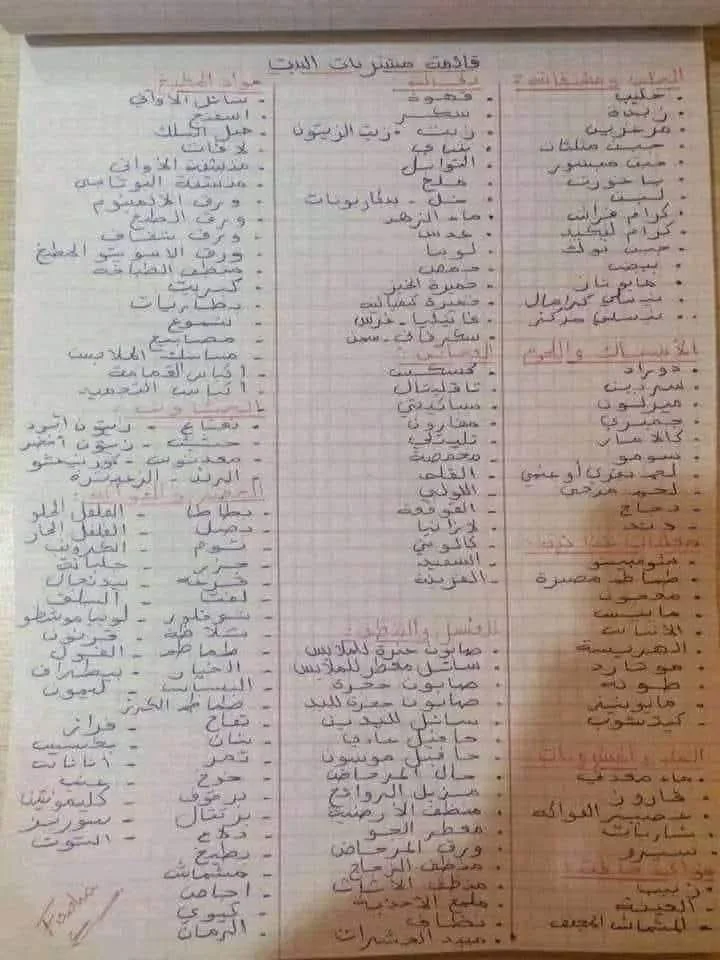 قائمة مشتريات البيت
الحليب ومشتقاته:
. حليب
. زبدة
. مرغرين
. جبن مثلثات
. جبن مبشور
. ياغورت
. لبن
. كرام فراش
. كرام ليكيد
. جبن
. بيض
. مايوناز
. نيستلي كراميال
. نيستلي مركز
الأسماك واللحوم
. دوراد
. سردين
. ميرلون
. جمبري
. كالامار
. سومو
. لحم بقري أو غنمي
. لحم مرحي
. دجاج
. دند
. شومبينيو
. طماطم مصبرة
. معجون
. مايس
. الأناناس
. الهريسة
. موتارد
. طونة
. مايونيز
. كيتشوب
الماء والمشروبات
. ماء معدني
. قازوز
. عصير الفواكه
. شاربات
. سيرو
فواكه جافة:
. زبيب
. العينة
. المشماش المجفف
. قهوة
. سكر
. زيت - زيت الزيتون
. شاي
. التوابل
. ملح
. خل -
. ماء الزهر
. عدس
. لوبيا
. حمص
. خميرة الخبز
. خميرة كيميائية
. فانيليا - فرس
. سكر فاني - سمن
العجائن:
. كسكس
. تاقليتال
. سباقيتي
. مقارون
. تليتلي
. محمصة
. القلم
. اللولبي
. القوقعة
. لازانيا
. كانوني
. السميد
. الفرينة
الغسل والتنظيف:
. صابون حجرة للملابس
. سائل معطر للملابس
. صابون حجرة
. صابون حجرة لليد
. سائل لليدين
. جافيل عادي
. جافيل موسون
. سائل المرحاض
. مزيل الروائح
. منظف الأرضية
. معطر الجو
. ورق المرحاض
. منظف الزجاج
. منظف الأثاث
. ملمع الأحذية
. مبيد الحشرات
مواد المطبخ
. سائل الأواني
. اسفنج
. حبل السلك
. لافات
. منشفة الأواني
. ورق الألمنيوم
. ورق الطبخ
- ورق شفاف
- منظف الطباخة
- كبريت
- بطاريات
- شموع
- مصابيح
- مساسك الملابس
- أكياس القمامة
- أكياس التجميد
- نعناع - زيتون أسود
- حشيش - زيتون أخضر
- معدنوس - كورنيشو
- الرند - الزعيترة
الخضر والفواكه:
- بطاطا - الفلفل الحلو
- بصل - الفلفل الحار
- ثوم - الكرونب
- جزر - جلبانة
- قرعة - بيدنجال
- لفت - السلق
- شوفلور - لوبيا مونشطو
- سلاطة - قرنون
- طماطم - الفول
- الخيار - بيطراف
- البسباس - ليمون
- طماطم الكرز
- تفاح - فراز
- بنان
- تمر - أناناس
- خوخ - عنب
- برقوق - كليمونتين
- برتقال
- دلاع - التوت
- بطيخ
- مشماش
- اجاص
- كيوي
- الرمان